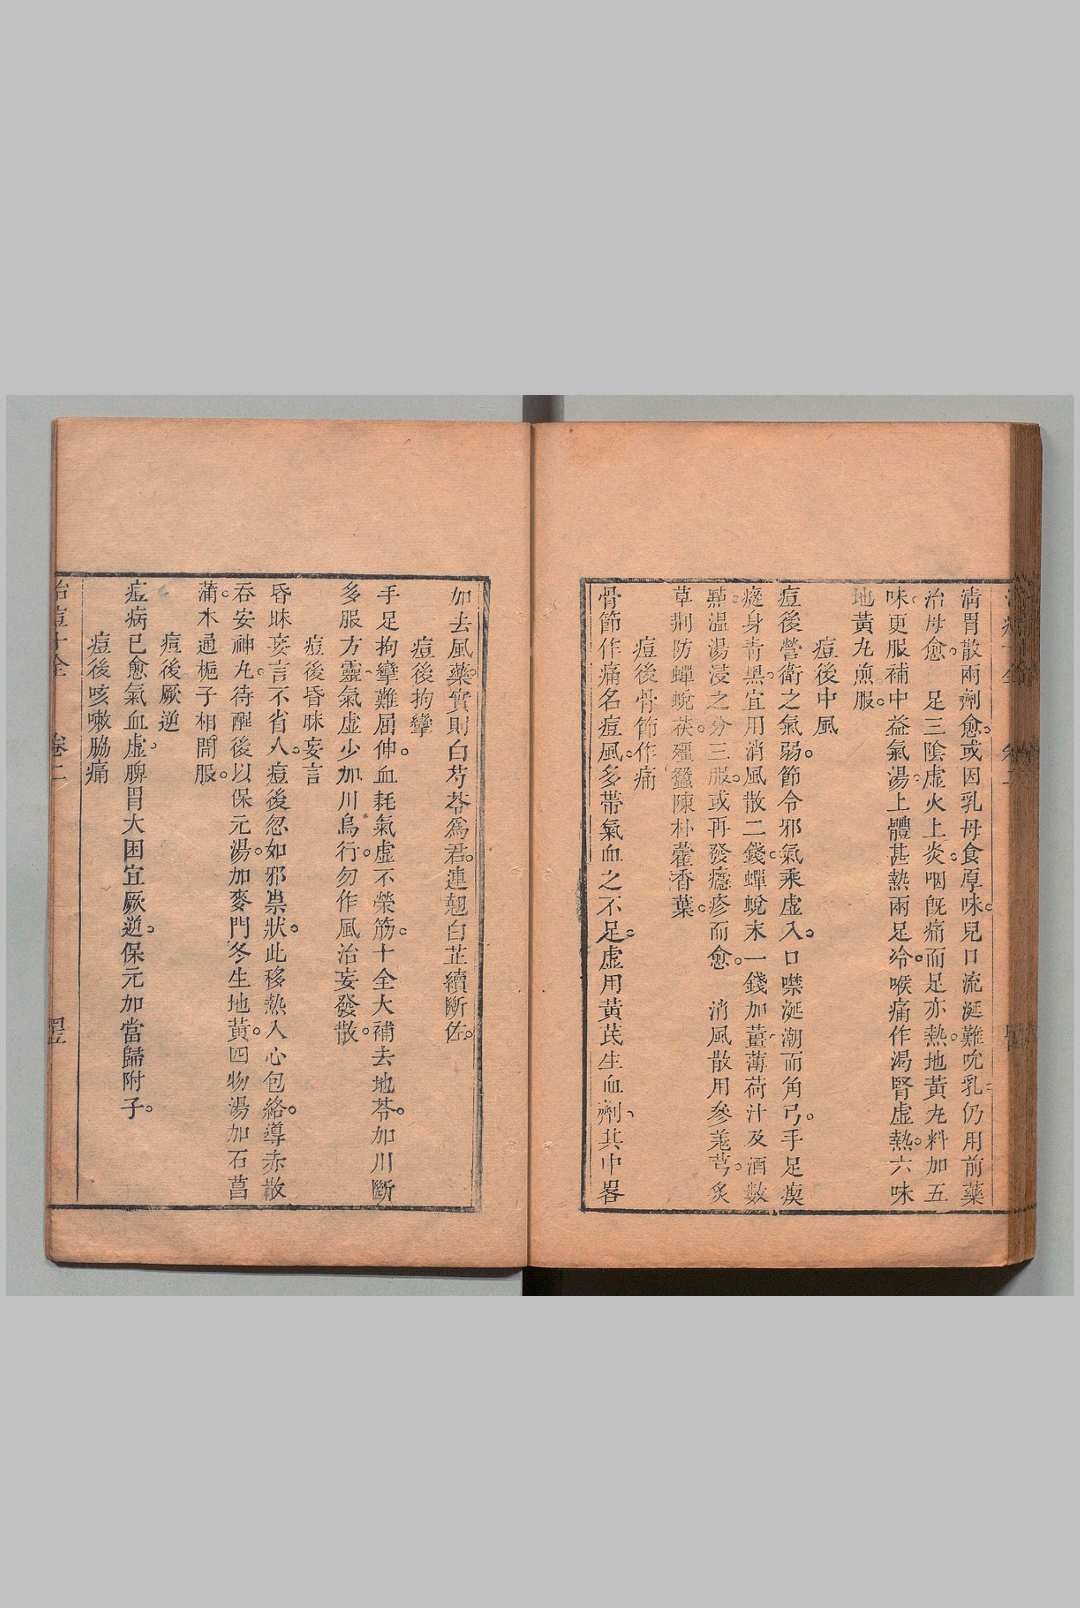 清胃散兩劑愈。或因乳母食厚味。兒口流涎難吮乳。仍用前藥
治母愈。　足三陰虛火上炎。咽既痛而足亦熱。地黃丸料加五
味。更服補中益氣湯。上體甚熱兩足冷。喉痛作渴腎虛熱。六味
地黃丸煎服。
痘後中風
痘後營衛之氣弱。節令邪氣乘虛入。口噤涎潮而角弓。手足瘈
瘲身青黑。宜用消風散二錢。蟬蛻末一錢。加薑薄荷汁及酒數
點。溫湯浸之分三服。或再發癮疹而愈。　消風散用參羌芎。炙
草荆防蟬蛻茯。殭蠶陳朴藿香葉。
痘後骨節作痛
骨節作痛名痘風。多帶氣血之不足。虛用黃芪生血劑、其中畧
加去風藥。實則白芍苓爲君。連翹白芷續斷佐。
痘後拘攣
手足拘攣難屈伸。血耗氣虛不榮筋。十全大補去地苓。加川斷
多服方靈。氣虛少加川烏行。勿作風治妄發散。
痘後昏昧妄言
昏昧妄言不省人。痘後忽如邪祟狀。此移熱入心包絡。導赤散
吞安神丸。待醒後以保元湯。加麥門冬生地黃。四物湯加石菖
蒲。木通梔子相間服。
痘後厥逆
痘病已愈氣血虛。脾胃大困宜厥逆。保元加當歸附子。
痘後咳嗽脇痛
治痘十全　卷二